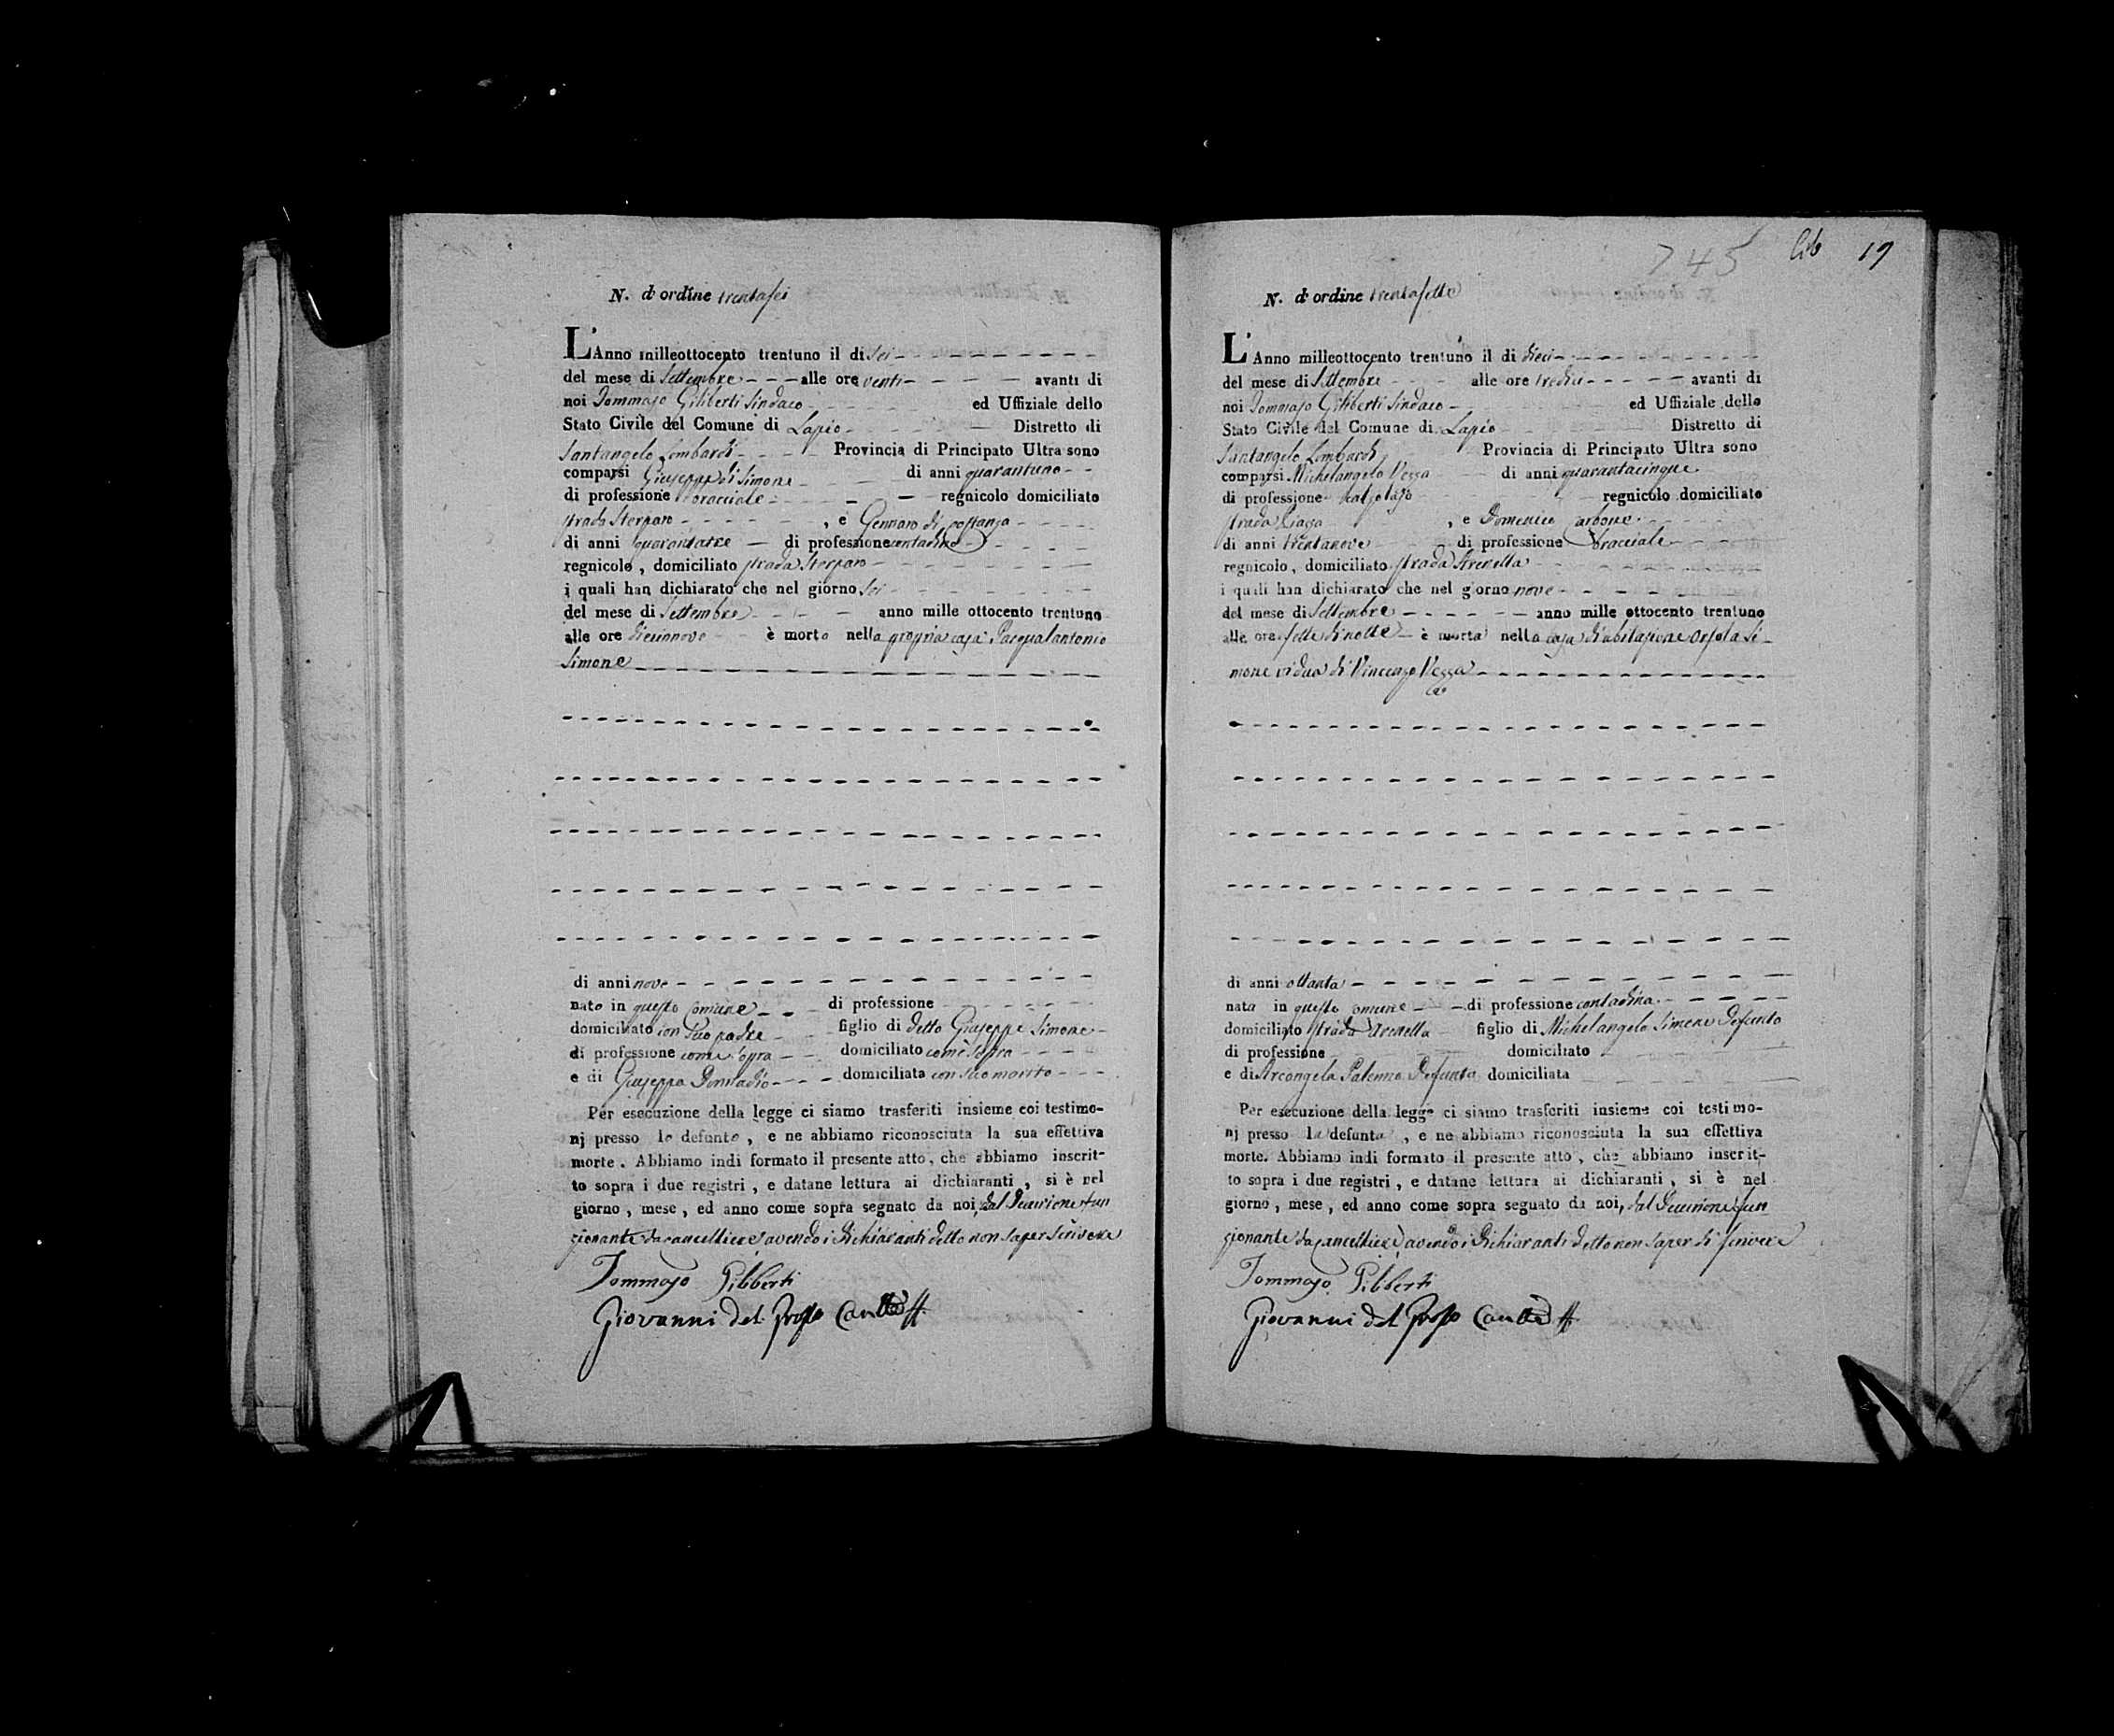 N. d'ordine trentasei
L'Anno milleottocento trentuno il di sei
del mese di Settembre alle ore venti avanti di
noi Tommaso Giliberti Sindaco ed Uffiziale dello
Stato Civile del Comune di Lapio Distretto di
Santangelo Lombardi Provincia di Principato Ultra sono
comparsi Giuseppe di Simone di anni quarantuno
di professione bracciale regnicolo domiciliato
strada Sterparo , e Gennaro di Costanza
di anni quarantatre di professione contadino
regnicolo , domiciliato strada Sterparo
i quali han dichiarato che nel giorno sei
del mese di Settembre anno mille ottocento trentuno
alle ore diecinnove è morto nella propria casa Pasqualantonio
Simone
di anni nove
nato in questo Comune di professione
domiciliato con suo padre figlio di detto Giuseppe Simone
di professione come sopra domiciliato come sopra
e di Giuseppa Donnadio domiciliata con suo marito
Per esecuzione della legge ci siamo trasferiti insieme coi testimo-
nj presso lo defunto , e ne abbiamo riconosciuta la sua effettiva
morte . Abbiamo indi formato il presente atto , che abbiamo inscrit-
to sopra i due registri , e datane lettura ai dichiaranti , si è nel
giorno , mese , ed anno come sopra segnato da noi, dal Decurione fun
zionante da cancelliere avendo i dichiaranti detto non saper scrivere
Tommaso Giliberti
Giovanni del Grosso
745 19
N. d'ordine trentasette
L'Anno milleottocento trentuno il di dieci
del mese di Settembre alle ore tredici avanti di
noi Tommaso Giliberti Sindaco ed Uffiziale dello
Stato Civile del Comune di Lapio Distretto di
Santangelo Lombardi Provincia di Principato Ultra sono
comparsi Michelangelo Vezza di anni quarantacinque
di professione calzolajo regnicolo domiciliato
strada Piazza , e Domenico Carbone
di anni trentanove di professione bracciale
regnicolo , domiciliato strada Arenella
i quali han dichiarato che nel giorno nove
del mese di Settembre anno mille ottocento trentuno
alle ore sette di notte è morta nella casa d'abitazione Orsola Si
mone vidua di Vincenzo Vezza
di anni ottanta
nata in questo Comune di professione contadina
domiciliato strada Arenella figlio di Michelangelo Simone defunto
di professione domiciliato
e di Arcangela Palermo defunta domiciliata
Per esecuzione della legge ci siamo trasferiti insieme coi testimo-
nj presso la defunta , e ne abbiamo riconosciuta la sua effettiva
morte. Abbiamo indi formato il presente atto , che abbiamo inscrit-
to sopra i due registri , e datane lettura ai dichiaranti , si è nel
giorno , mese , ed anno come sopra segnato da noi, dal Decurione fun
zionante da cancelliere avendo i dichiaranti detto non saper di scrivere
Tommaso Giliberti
Giovanni del Grosso